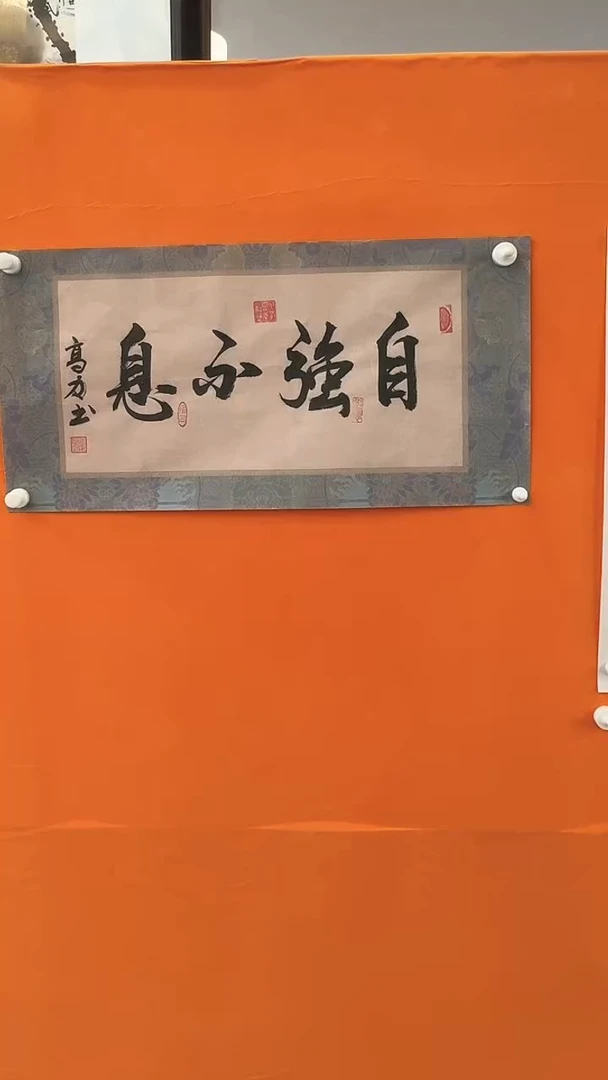 自強不息
高力书